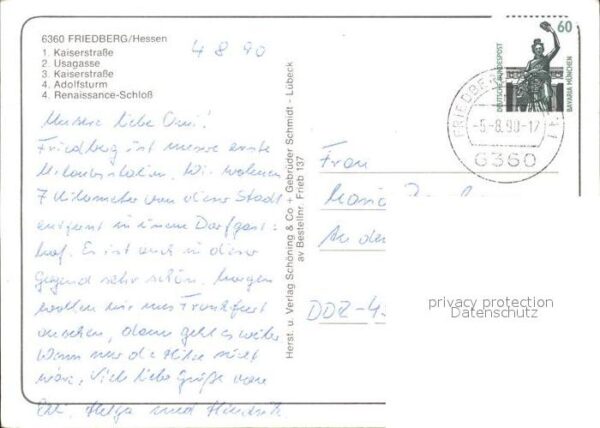 6360 FRIEDBERG/Hessen
1. Kaiserstraße
2. Usagasse
3. Kaiserstraße
4. Adolfsturm
4. Renaissance-Schloß
4 8 90
Unsere liebe Omi!
Friedberg ist unsere erste
Urlaubsstation. Wir wohnen
7 Kilometer von dieser Stadt
entfernt in einem Dorfgast-
hof. Es ist auch in dieser
Gegend sehr schön. Morgen
wollen wir uns Frankfurt
ansehen, dann geht es weiter
Wenn nur die Hitze nicht
wäre. Viele liebe Grüße von
Helga und Hendrik
Herst. u. Verlag Schöning & Co + Gebrüder Schmidt - Lübeck
av Bestellnr. Frieb 137
60
DEUTSCHE BUNDESPOST
BAVARIA MÜNCHEN
FRIEDBERG
-5.-8.90-17
6360
Frau
Maria
An der
DDR-4
privacy protection
Datenschutz